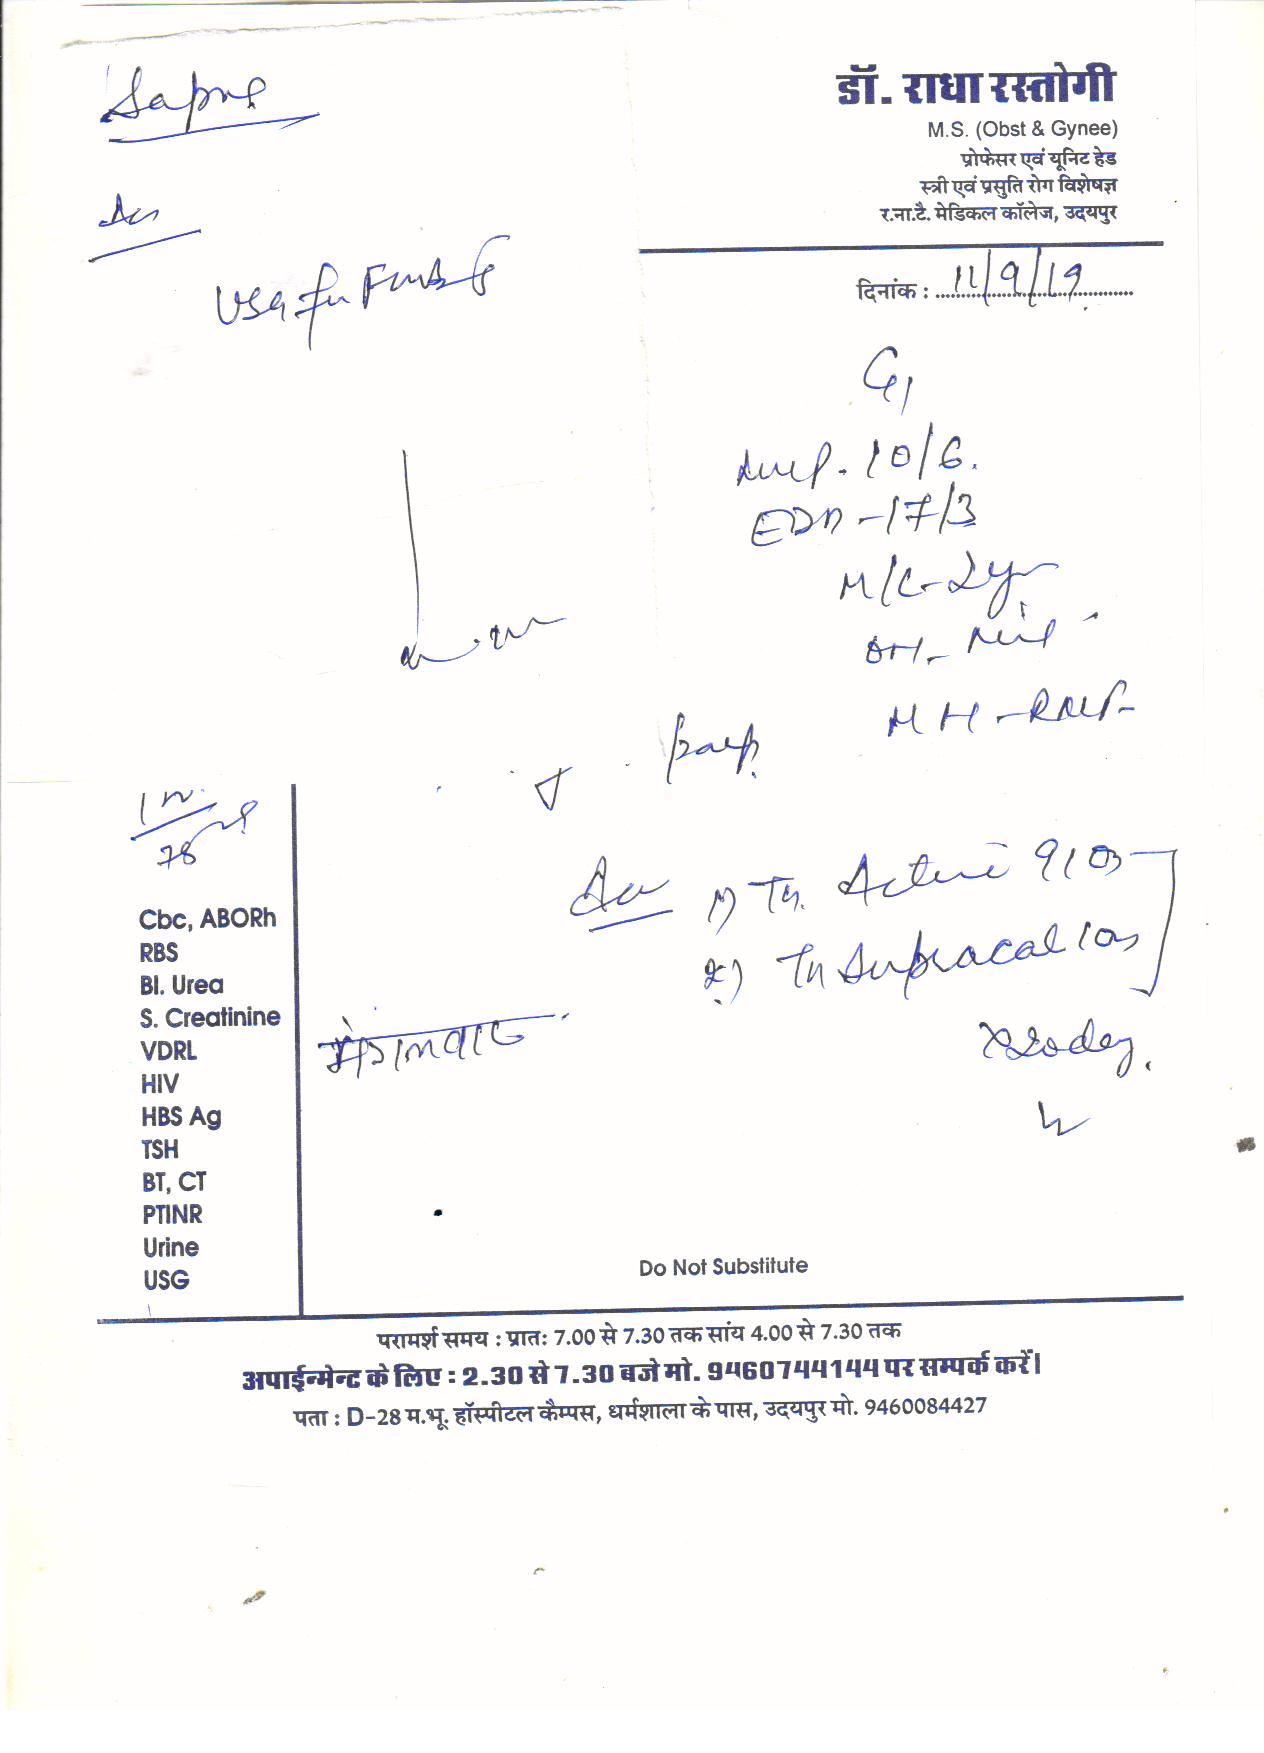 Sapne
डॉ. राधा रस्तोगी
M.S. (Obst & Gynee)
प्रोफेसर एवं यूनिट हेड
स्त्री एवं प्रसुति रोग विशेषज्ञ
र.ना.टै. मेडिकल कॉलेज, उदयपुर
Adv
USG for
दिनांक : 11/9/19
G1
LMP - 10/6.
EDD - 17/3
M/C - 2yr
OH - Nil
MH - RMP -
78
Adv 1) Tn. Active 9 1 OD
2) Tn Supracal 1 OD
x 20 day.
मंगलवार
Cbc, ABORh
RBS
Bl. Urea
S. Creatinine
VDRL
HIV
HBS Ag
TSH
BT, CT
PTINR
Urine
USG
Do Not Substitute
परामर्श समय : प्रातः 7.00 से 7.30 तक सांय 4.00 से 7.30 तक
अपाईन्मेन्ट के लिए : 2.30 से 7.30 बजे मो. 9460744144 पर सम्पर्क करें।
पता : D-28 म.भू. हॉस्पीटल कैम्पस, धर्मशाला के पास, उदयपुर मो. 9460084427